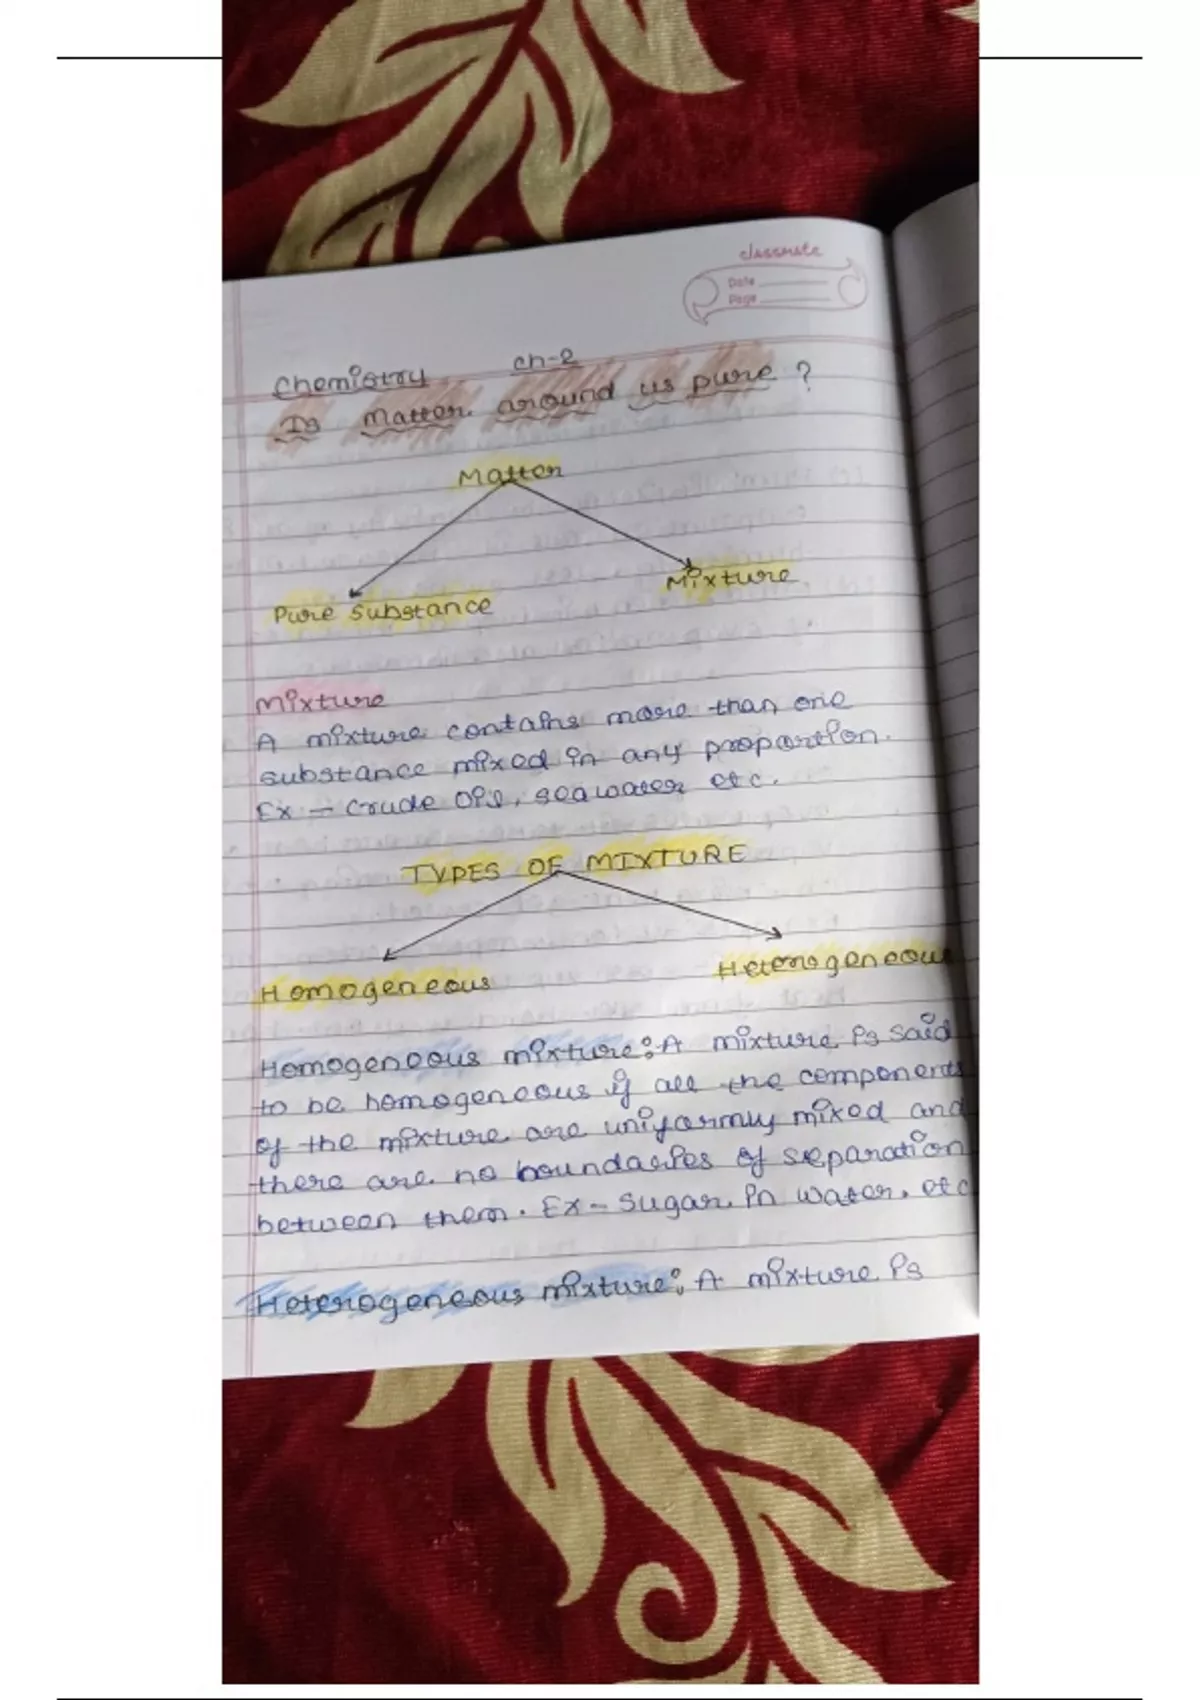 classmate
Date
Page
Chemistry Ch-2
Is Matter around us pure ?
Matter
Mixture
Pure Substance
Mixture
A mixture contains more than one
substance mixed in any proportion.
Ex - Crude Oil, seawater etc.
TYPES OF MIXTURE
Homogeneous
Heterogeneous
Homogeneous mixture: A mixture is said
to be homogeneous if all the components
of the mixture are uniformly mixed and
there are no boundaries of separation
between them. Ex- Sugar in water, etc
Heterogeneous mixture: A mixture is